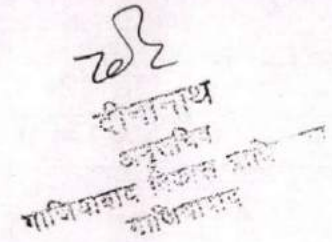 दीनानाथ
अनुसचिव
गाजियाबाद विकास प्राधि
गाजियाबाद